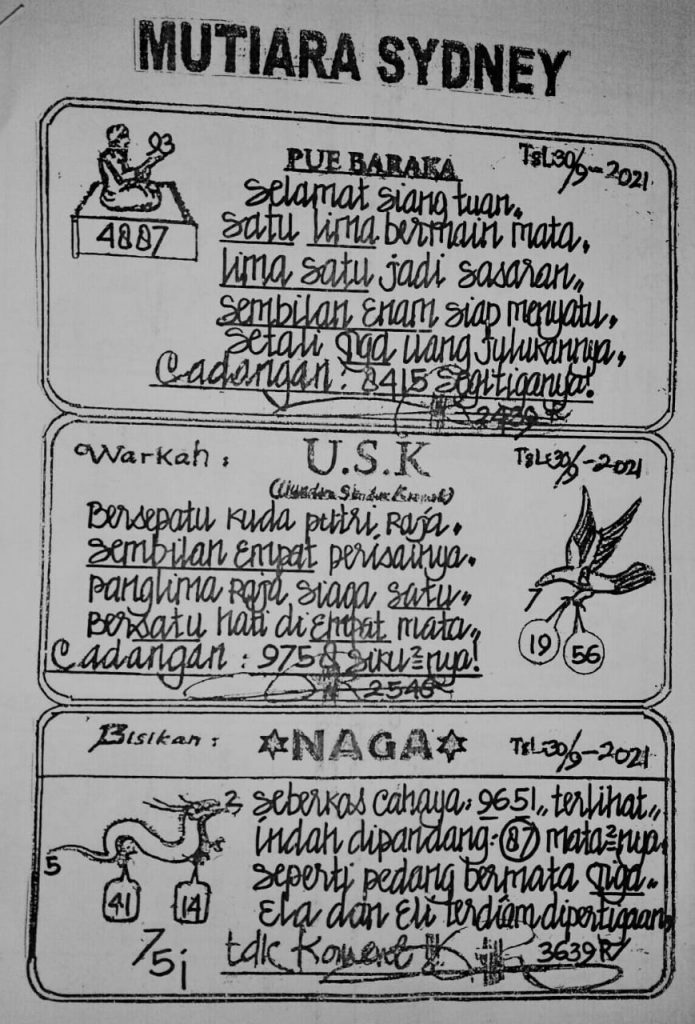 MUTIARA SYDNEY
93
4887
PUE BARAKA
TSL=30/9-2021
Selamat siang tuan.
satu lima bermain mata.
lima satu jadi sasaran,,
sembilan enam siap menyatu.
setali tiga uang julukannya.
Cadangan : 8415 segitiganya!
2439 R
Warkah :
U.S.K
TSL=30/9-2021
Bersepatu kuda putri raja.
Sembilan empat perisainya.
panglima raja siaga satu,,
Bersatu hati di empat mata,,
Cadangan : 9758 siku²nya!
2546 R
19
56
Bisikan :
NAGA
TSL=30/9-2021
seberkas cahaya: 9651,, terlihat,,
indah dipandang: 87 mata²nya.
seperti pedang bermata tiga..
Ela dan Eli terdiam dipertigaan,
tdk Koment
3639 R
5
41
14
75i